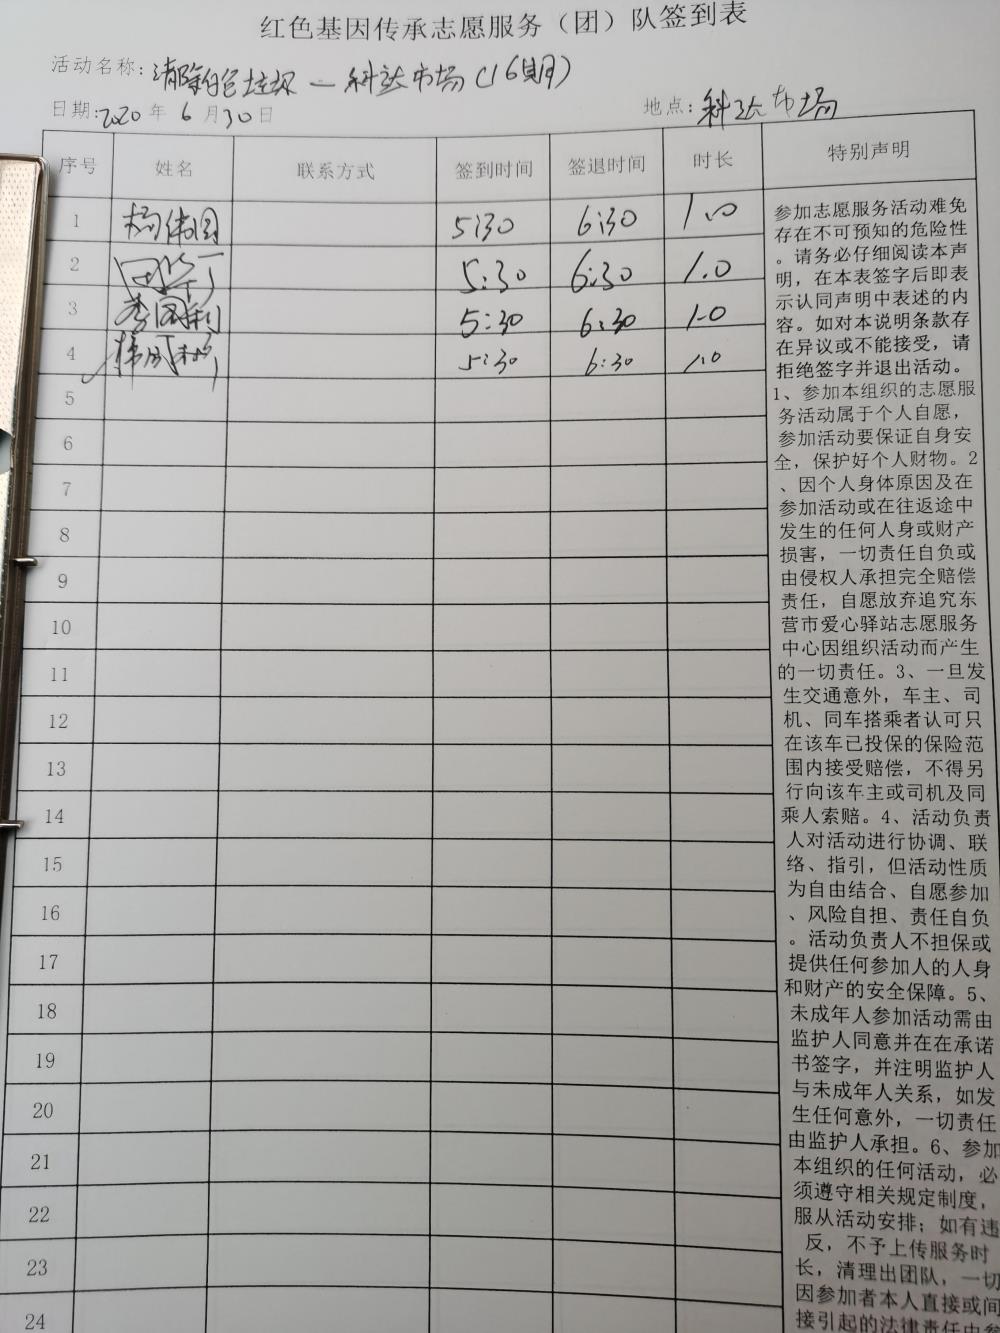 红色基因传承志愿服务（团）队签到表
活动名称：清除白色垃圾—科达市场（16期）
日期：2020年6月30日 地点：科达市场
序号 姓名 联系方式 签到时间 签退时间 时长 特别声明
1 杨伟国 5:30 6:30 1.0
2 5:30 6:30 1.0
3 李国利 5:30 6:30 1.0
4 5:30 6:30 1.0
5
6
7
8
9
10
11
12
13
14
15
16
17
18
19
20
21
22
23
24
参加志愿服务活动难免
存在不可预知的危险性
。请务必仔细阅读本声
明，在本表签字后即表
示认同声明中表述的内
容。如对本说明条款存
在异议或不能接受，请
拒绝签字并退出活动。
1、参加本组织的志愿服
务活动属于个人自愿，
参加活动要保证自身安
全，保护好个人财物。2
、因个人身体原因及在
参加活动或在往返途中
发生的任何人身或财产
损害，一切责任自负或
由侵权人承担完全赔偿
责任，自愿放弃追究东
营市爱心驿站志愿服务
中心因组织活动而产生
的一切责任。3、一旦发
生交通意外，车主、司
机、同车搭乘者认可只
在该车已投保的保险范
围内接受赔偿，不得另
行向该车主或司机及同
乘人索赔。4、活动负责
人对活动进行协调、联
络、指引，但活动性质
为自由结合、自愿参加
、风险自担、责任自负
。活动负责人不担保或
提供任何参加人的人身
和财产的安全保障。5、
未成年人参加活动需由
监护人同意并在在承诺
书签字，并注明监护人
与未成年人关系，如发
生任何意外，一切责任
由监护人承担。6、参加
本组织的任何活动，必
须遵守相关规定制度，
服从活动安排；如有违
反，不予上传服务时
长，清理出团队，一切
因参加者本人直接或间
接引起的法律责任由参